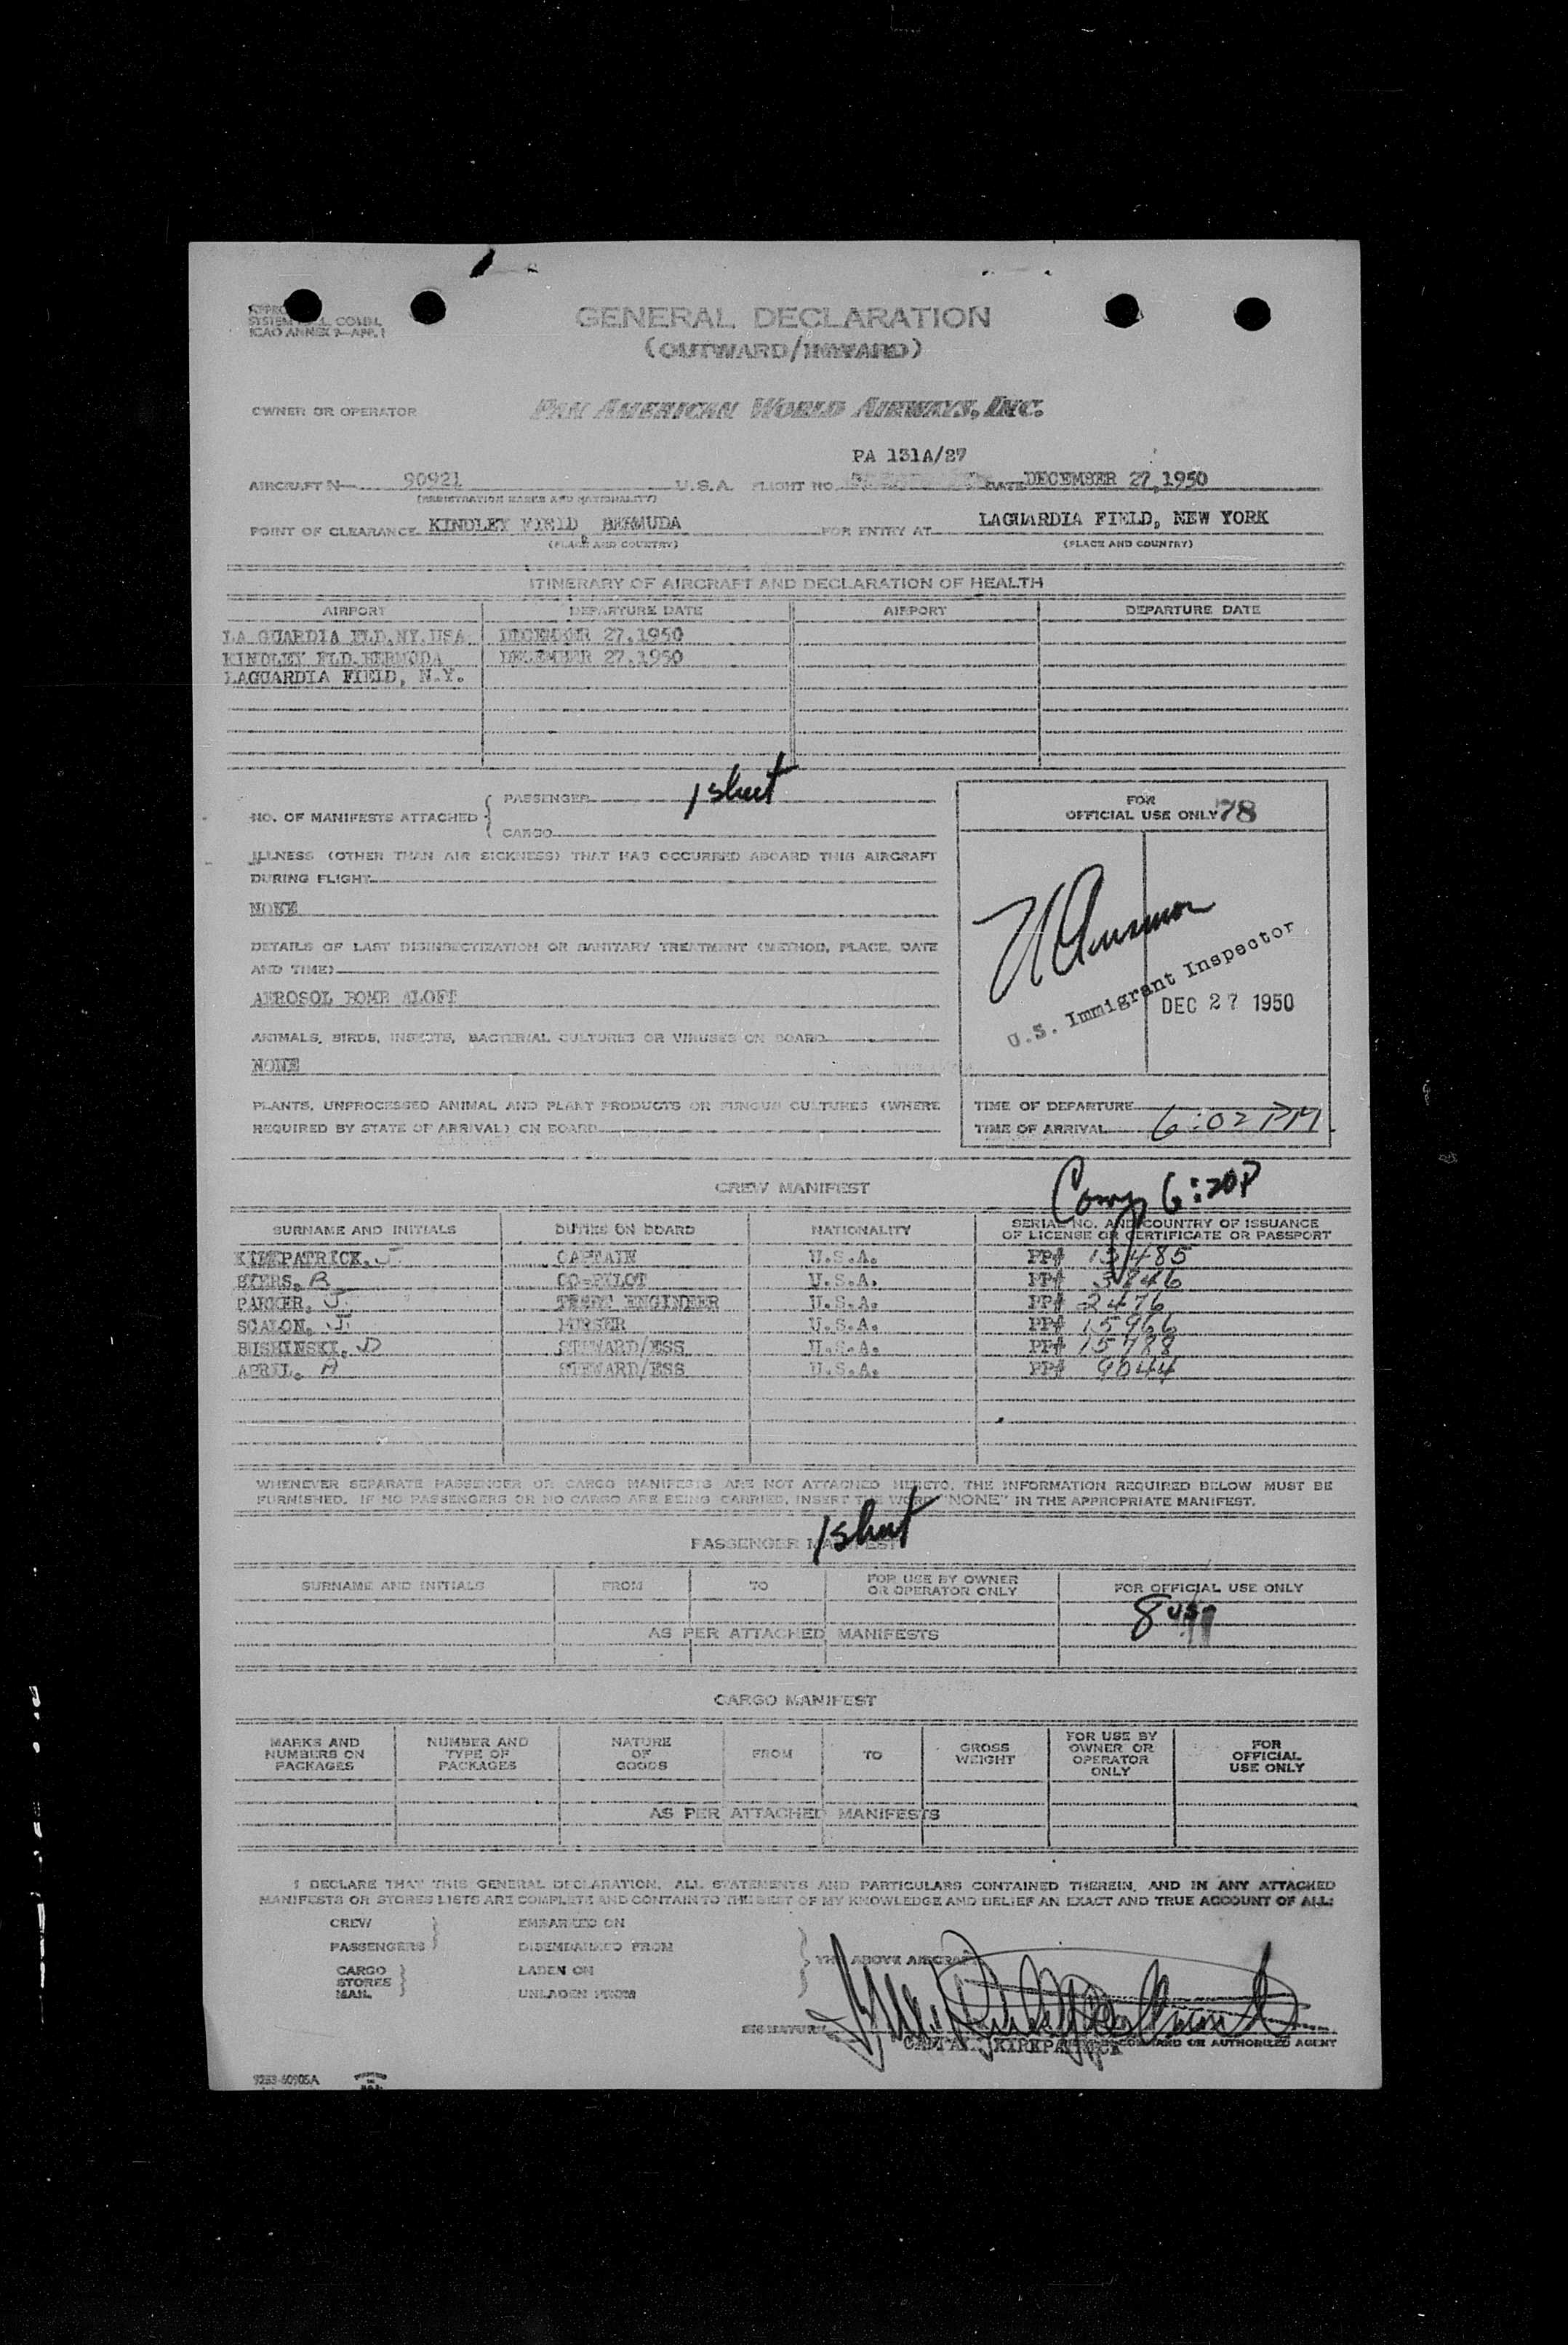 SYSTEM COMM.
ICAO ANNEX 9—APP. 1
GENERAL DECLARATION
(OUTWARD/INWARD)
OWNER OR OPERATOR PAN AMERICAN WORLD AIRWAYS, INC.
PA 131A/27
AIRCRAFT N— 90921 U.S.A. FLIGHT NO. DATE DECEMBER 27, 1950
(REGISTRATION MARKS AND NATIONALITY)
POINT OF CLEARANCE KINDLEY FIELD, BERMUDA FOR ENTRY AT LAGUARDIA FIELD, NEW YORK
(PLACE AND COUNTRY) (PLACE AND COUNTRY)
ITINERARY OF AIRCRAFT AND DECLARATION OF HEALTH
AIRPORT DEPARTURE DATE AIRPORT DEPARTURE DATE
LA GUARDIA FLD.NY.USA DECEMBER 27.1950
KINDLEY FLD.BERMUDA DECEMBER 27.1950
LAGUARDIA FIELD, N.Y.
NO. OF MANIFESTS ATTACHED { PASSENGER 1 sheet
CARGO
FOR
OFFICIAL USE ONLY 78
ILLNESS (OTHER THAN AIR SICKNESS) THAT HAS OCCURRED ABOARD THIS AIRCRAFT
DURING FLIGHT
NONE
DETAILS OF LAST DISINSECTIZATION OR SANITARY TREATMENT (METHOD, PLACE, DATE
AND TIME)
AEROSOL BOMB ALOFT
U.S. Immigrant Inspector
DEC 27 1950
ANIMALS, BIRDS, INSECTS, BACTERIAL CULTURES OR VIRUSES ON BOARD
NONE
PLANTS, UNPROCESSED ANIMAL AND PLANT PRODUCTS OR FUNGUS CULTURES (WHERE
REQUIRED BY STATE OF ARRIVAL) ON BOARD
TIME OF DEPARTURE
TIME OF ARRIVAL 6:02 PM
CREW MANIFEST
Comp 6:20P
SURNAME AND INITIALS DUTIES ON BOARD NATIONALITY SERIAL NO. AND COUNTRY OF ISSUANCE
OF LICENSE OR CERTIFICATE OR PASSPORT
KIRKPATRICK, J. CAPTAIN U.S.A. PP# 13485
BYERS, R CO-PILOT U.S.A. PP# 3846
PARKER, J. ENGINEER U.S.A. PP# 2476
SCALON, J. PURSER U.S.A. PP# 15966
BUSHINSKI, D STEWARD/ESS U.S.A. PP# 15788
APRIL, A STEWARD/ESS U.S.A. PP# 9044
WHENEVER SEPARATE PASSENGER OR CARGO MANIFESTS ARE NOT ATTACHED HERETO, THE INFORMATION REQUIRED BELOW MUST BE
FURNISHED. IF NO PASSENGERS OR NO CARGO ARE BEING CARRIED, INSERT THE WORD "NONE" IN THE APPROPRIATE MANIFEST.
1 sheet
PASSENGER MANIFEST
SURNAME AND INITIALS FROM TO FOR USE BY OWNER
OR OPERATOR ONLY FOR OFFICIAL USE ONLY
8
AS PER ATTACHED MANIFESTS
CARGO MANIFEST
MARKS AND
NUMBERS ON
PACKAGES NUMBER AND
TYPE OF
PACKAGES NATURE
OF
GOODS FROM TO GROSS
WEIGHT FOR USE BY
OWNER OR
OPERATOR
ONLY FOR
OFFICIAL
USE ONLY
AS PER ATTACHED MANIFESTS
I DECLARE THAT THIS GENERAL DECLARATION, ALL STATEMENTS AND PARTICULARS CONTAINED THEREIN, AND IN ANY ATTACHED
MANIFESTS OR STORES LISTS ARE COMPLETE AND CONTAIN TO THE BEST OF MY KNOWLEDGE AND BELIEF AN EXACT AND TRUE ACCOUNT OF ALL:
CREW EMBARKED ON
PASSENGERS DISEMBARKED FROM
THE ABOVE AIRCRAFT
CARGO LADEN ON
STORES
MAIL UNLADEN FROM
SIGNATURE
CAPTAIN J KIRKPATRICK COMMAND OR AUTHORIZED AGENT
9253-60905A